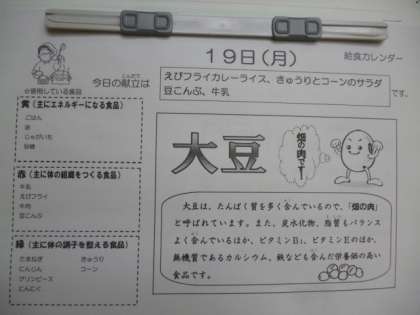 19日(月)
給食カレンダー
こんだて
今日の献立は
えびフライカレーライス、きゅうりとコーンのサラダ
豆こんぶ、牛乳
です。
☆使用している食品
黄(主にエネルギーになる食品)
ごはん
油
じゃがいも
砂糖
赤(主に体の組織をつくる食品)
牛乳
えびフライ
牛肉
豆こんぶ
緑(主に体の調子を整える食品)
たまねぎ きゅうり
にんじん コーン
グリンピース
にんにく
大豆
畑の肉で〜す
大豆は、たんぱく質を多く含んでいるので、「畑の肉」
と呼ばれています。また、炭水化物、脂質もバランス
よく含んでいるほか、ビタミンB₁、ビタミンEのほか、
無機質であるカルシウム、鉄なども含んだ栄養価の高い
食品です。